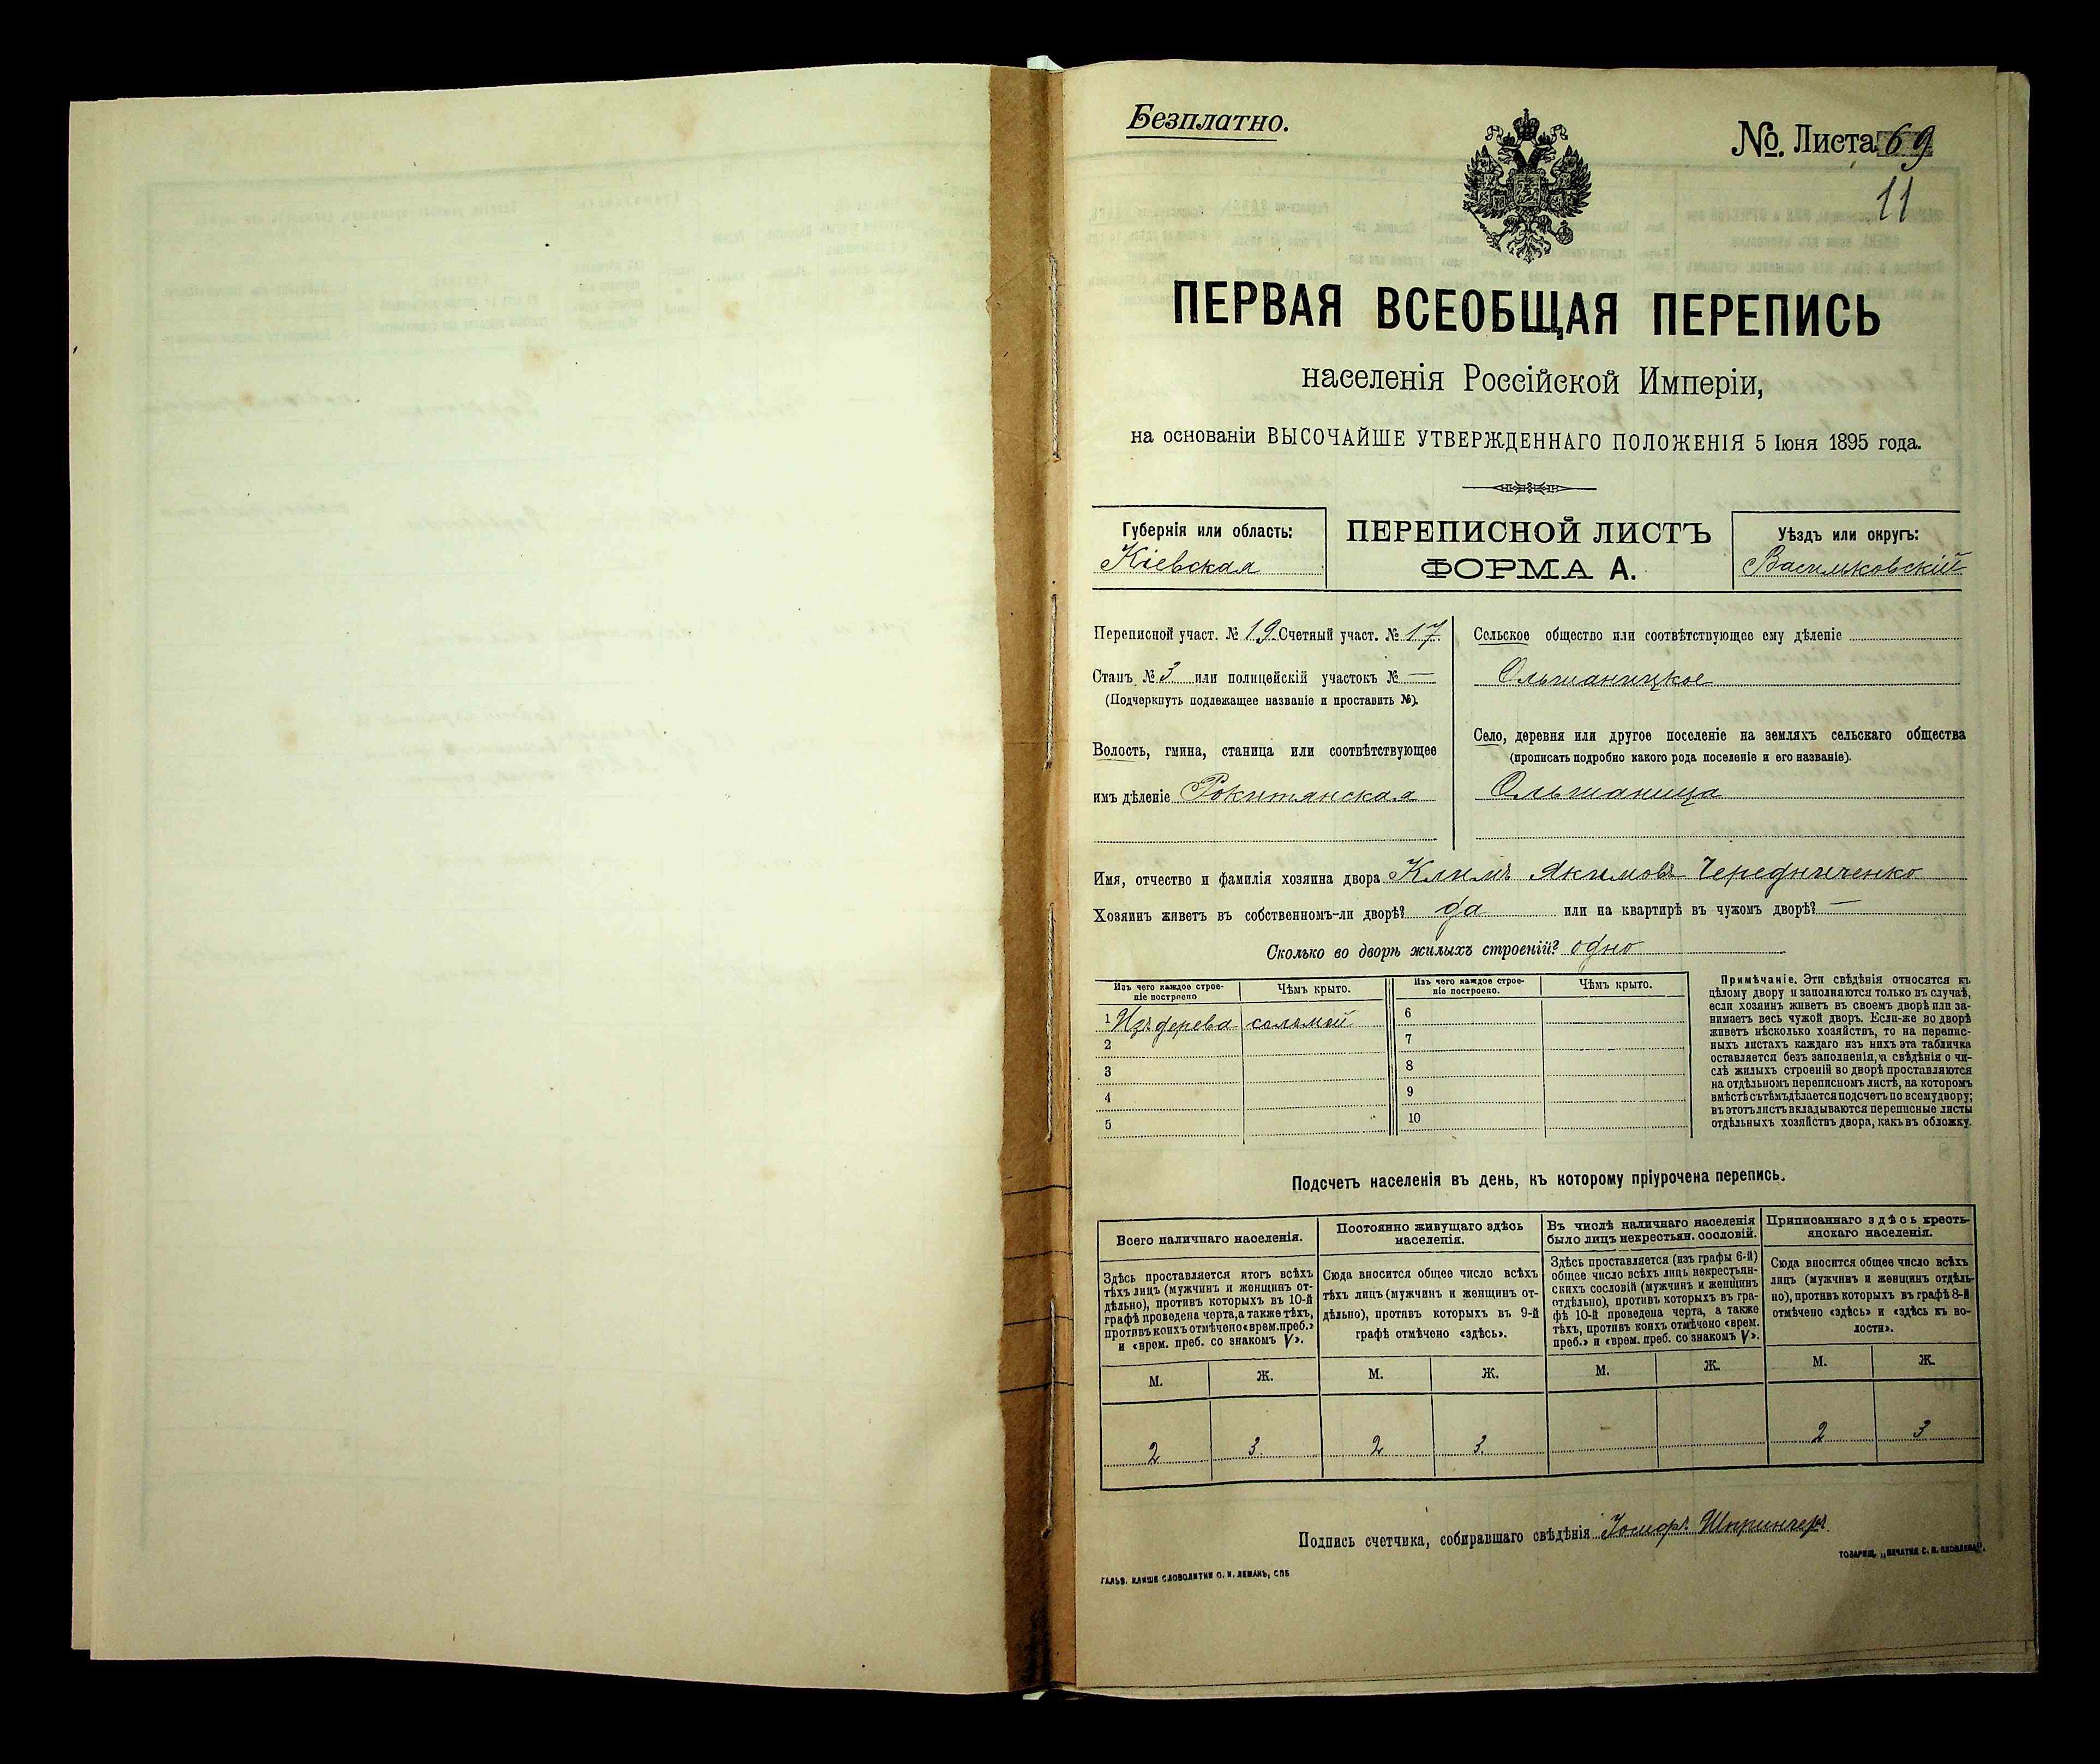 Безплатно.
№. Листа 69
11
ПЕРВАЯ ВСЕОБЩАЯ ПЕРЕПИСЬ
населенія Россійской Имперіи,
на основаніи ВЫСОЧАЙШЕ УТВЕРЖДЕННАГО ПОЛОЖЕНІЯ 5 Іюня 1895 года.
Губернія или область:
Кіевская
ПЕРЕПИСНОЙ ЛИСТЪ
ФОРМА А.
Уѣздъ или округъ:
Васильковскій
Переписной участ. № 19 Счетный участ. № 17
Станъ № 3 или полицейскій участокъ № —
(Подчеркнуть подлежащее названіе и проставить №).
Волость, гмина, станица или соотвѣтствующее
имъ дѣленіе Рокитянская
Сельское общество или соотвѣтствующее ему дѣленіе
Ольшаницкое
Село, деревня или другое поселеніе на земляхъ сельскаго общества
(прописать подробно какого рода поселеніе и его названіе).
Ольшаница
Имя, отчество и фамилія хозяина двора Климъ Якимовъ Чередниченко
Хозяинъ живетъ въ собственномъ-ли дворѣ? да или на квартирѣ въ чужомъ дворѣ? —
Сколько во дворѣ жилыхъ строеній? одно
Изъ чего каждое строе-
ніе построено
Чѣмъ крыто.
Изъ чего каждое строе-
ніе построено.
Чѣмъ крыто.
1 Изъ дерева соломой
2
3
4
5
6
7
8
9
10
Примѣчаніе. Эти свѣдѣнія относятся къ
цѣлому двору и заполняются только въ случаѣ,
если хозяинъ живетъ въ своемъ дворѣ или за-
нимаетъ весь чужой дворъ. Если-же во дворѣ
живетъ нѣсколько хозяйствъ, то на перепис-
ныхъ листахъ каждаго изъ нихъ эта табличка
оставляется безъ заполненія, а свѣдѣнія о чи-
слѣ жилыхъ строеній во дворѣ проставляются
на отдѣльномъ переписномъ листѣ, на которомъ
вмѣстѣ съ тѣмъ дѣлается подсчетъ по всему двору;
въ этотъ листъ вкладываются переписные листы
отдѣльныхъ хозяйствъ двора, какъ въ обложку.
Подсчетъ населенія въ день, къ которому пріурочена перепись.
Всего наличнаго населенія.
Здѣсь проставляется итогъ всѣхъ
тѣхъ лицъ (мужчинъ и женщинъ от-
дѣльно), противъ которыхъ въ 10-й
графѣ проведена черта, а также тѣхъ,
противъ коихъ отмѣчено «врем. преб.»
и «врем. преб. со знакомъ V».
М. Ж.
2 3
Постоянно живущаго здѣсь
населенія.
Сюда вносится общее число всѣхъ
тѣхъ лицъ (мужчинъ и женщинъ от-
дѣльно), противъ которыхъ въ 9-й
графѣ отмѣчено «здѣсь».
М. Ж.
2 3
Въ числѣ наличнаго населенія
было лицъ некрестьян. сословій.
Здѣсь проставляется (изъ графы 6-й)
общее число всѣхъ лицъ некрестьян-
скихъ сословій (мужчинъ и женщинъ
отдѣльно), противъ которыхъ въ гра-
фѣ 10-й проведена черта, а также
тѣхъ, противъ коихъ отмѣчено «врем.
преб.» и «врем. преб. со знакомъ V».
М. Ж.
Приписаннаго здѣсь кресть-
янскаго населенія.
Сюда вносится общее число всѣхъ
лицъ (мужчинъ и женщинъ отдѣль-
но), противъ которыхъ въ графѣ 8-й
отмѣчено «здѣсь» и «здѣсь къ во-
лости».
М. Ж.
2 3
Подпись счетчика, собиравшаго свѣдѣнія Іосифъ
ГАЛЬВ. КЛИШЕ СЛОВОЛИТНИ О. И. ЛЕМАНЪ, СПБ
ТОВАРИЩ. „ПЕЧАТНЯ С. П. ЯКОВЛЕВА".